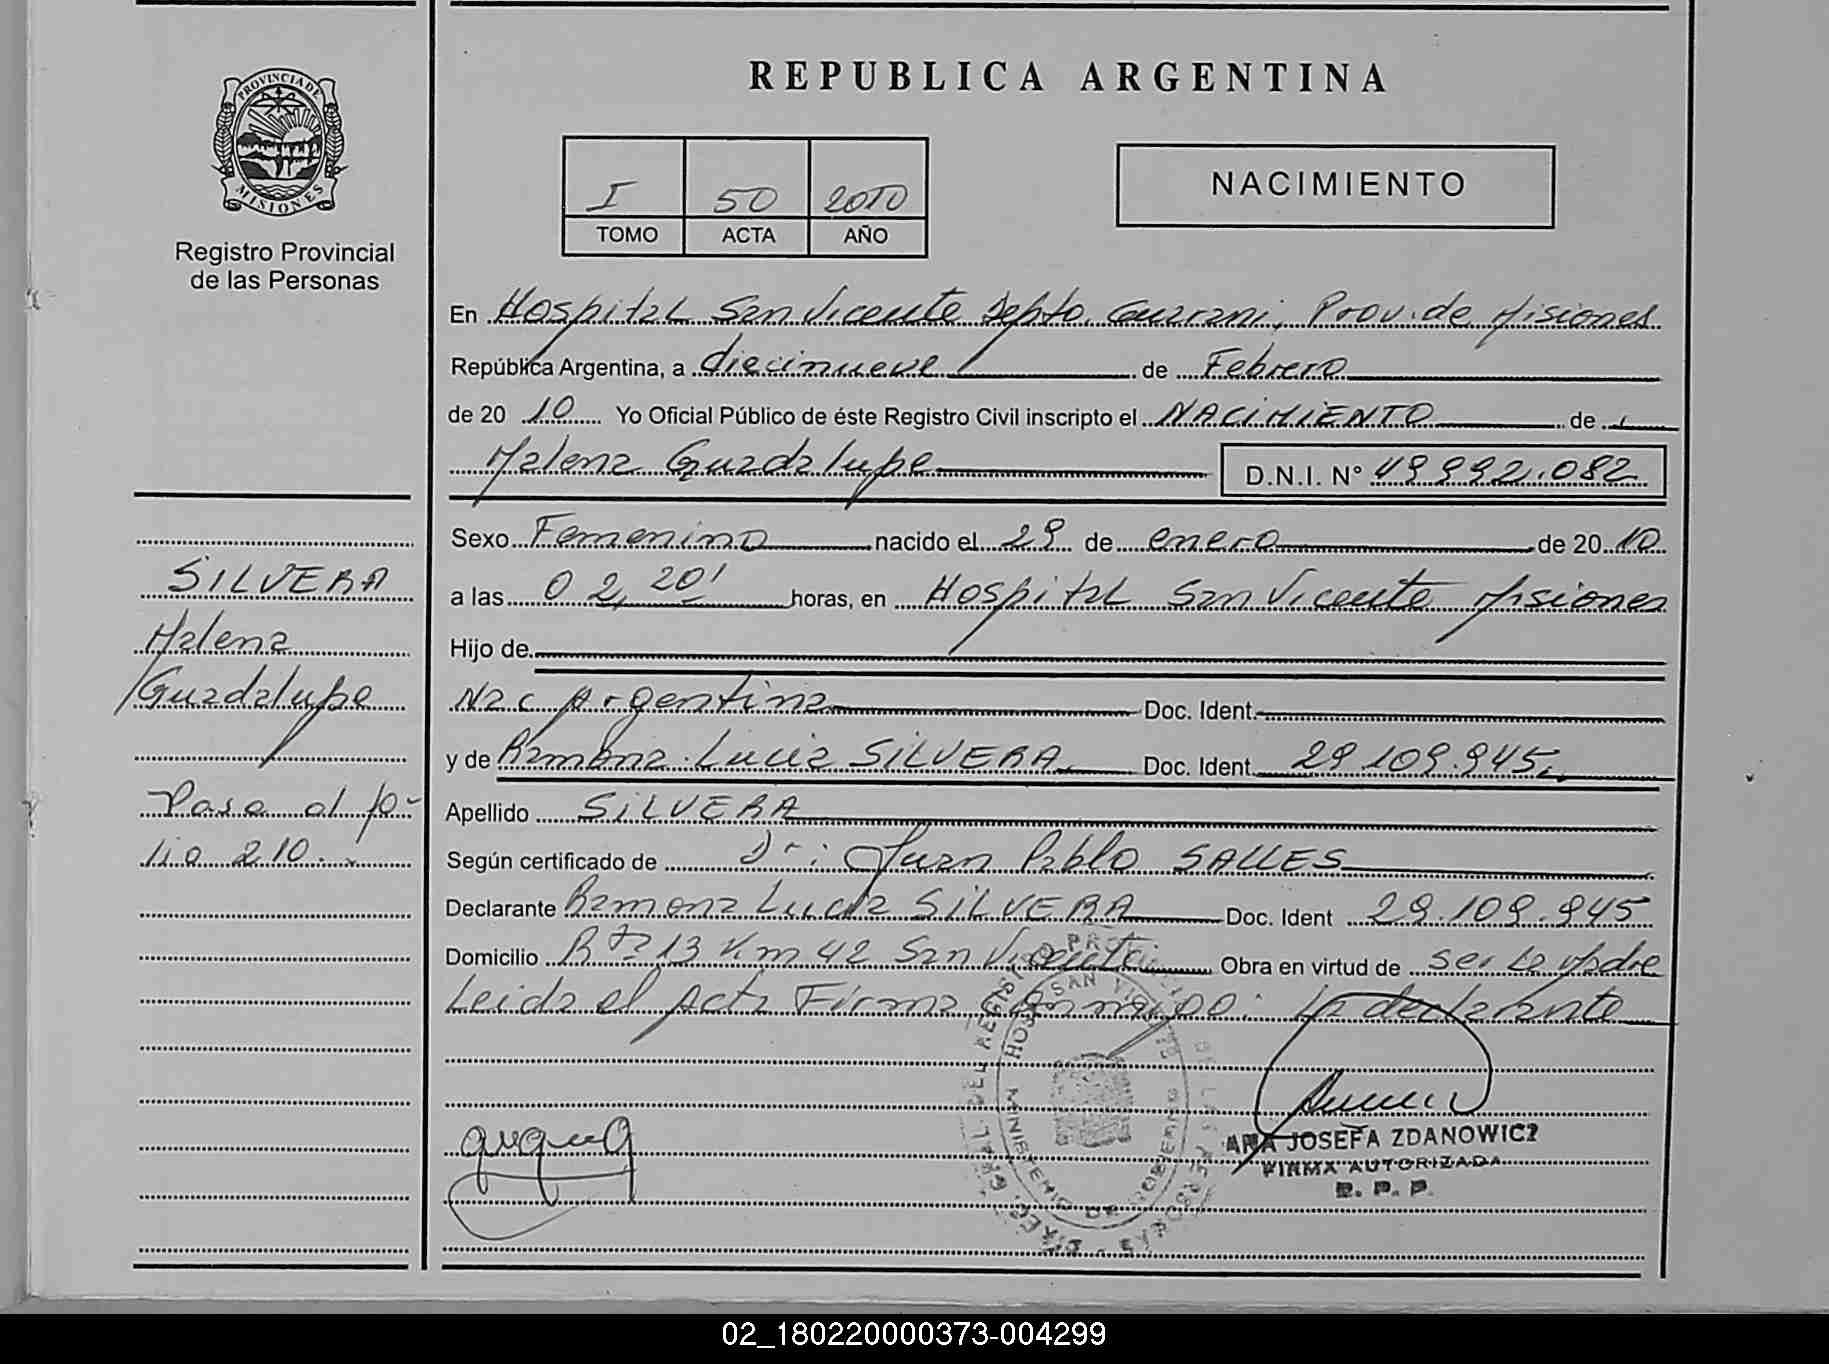 PROVINCIA DE
MISIONES
Registro Provincial
de las Personas
SILVERA
Malena
Guadalupe
Pasa al fo-
lio 210.
REPUBLICA ARGENTINA
I 50 2010
TOMO ACTA AÑO
NACIMIENTO
En Hospital San Vicente Depto. Guarani, Prov. de Misiones
República Argentina, a diecinueve de Febrero
de 20 10 Yo Oficial Público de éste Registro Civil inscripto el NACIMIENTO de
Malena Guadalupe D.N.I. N° 49992.082
Sexo Femenino nacido el 29 de enero de 20 10
a las 02,20' horas, en Hospital San Vicente Misiones
Hijo de
Nac Argentina Doc. Ident.
y de Ramona Lucia SILVERA Doc. Ident. 29.109.945
Apellido SILVERA
Según certificado de Dr: Juan Pablo SALLES
Declarante Ramona Lucia SILVERA Doc. Ident 29.109.945
Domicilio Rta 13 Km 42 San Vicente Obra en virtud de ser la Madre
Leida el Acta Firma Conmigo: La declarante
HOSP. SAN VICENTE
MINISTERIO DE GOBIERNO
ANA JOSEFA ZDANOWICZ
FIRMA AUTORIZADA
R. P. P.
02_180220000373-004299